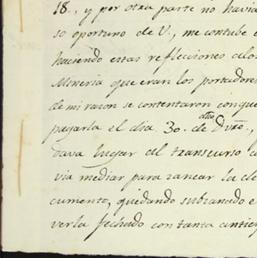 18. y por otra parte no havia
so oportuno de V., me contube e
haciendo estas reflecciones alos
Mineria que eran los portadores
de mi razon se contentaron con que
pagarla el dia 30. de dho Dvre.,
dava lugar al transcurso
via mediar para sanear la
cumento, quedando subsanado e
verla fechado con tanta anticip